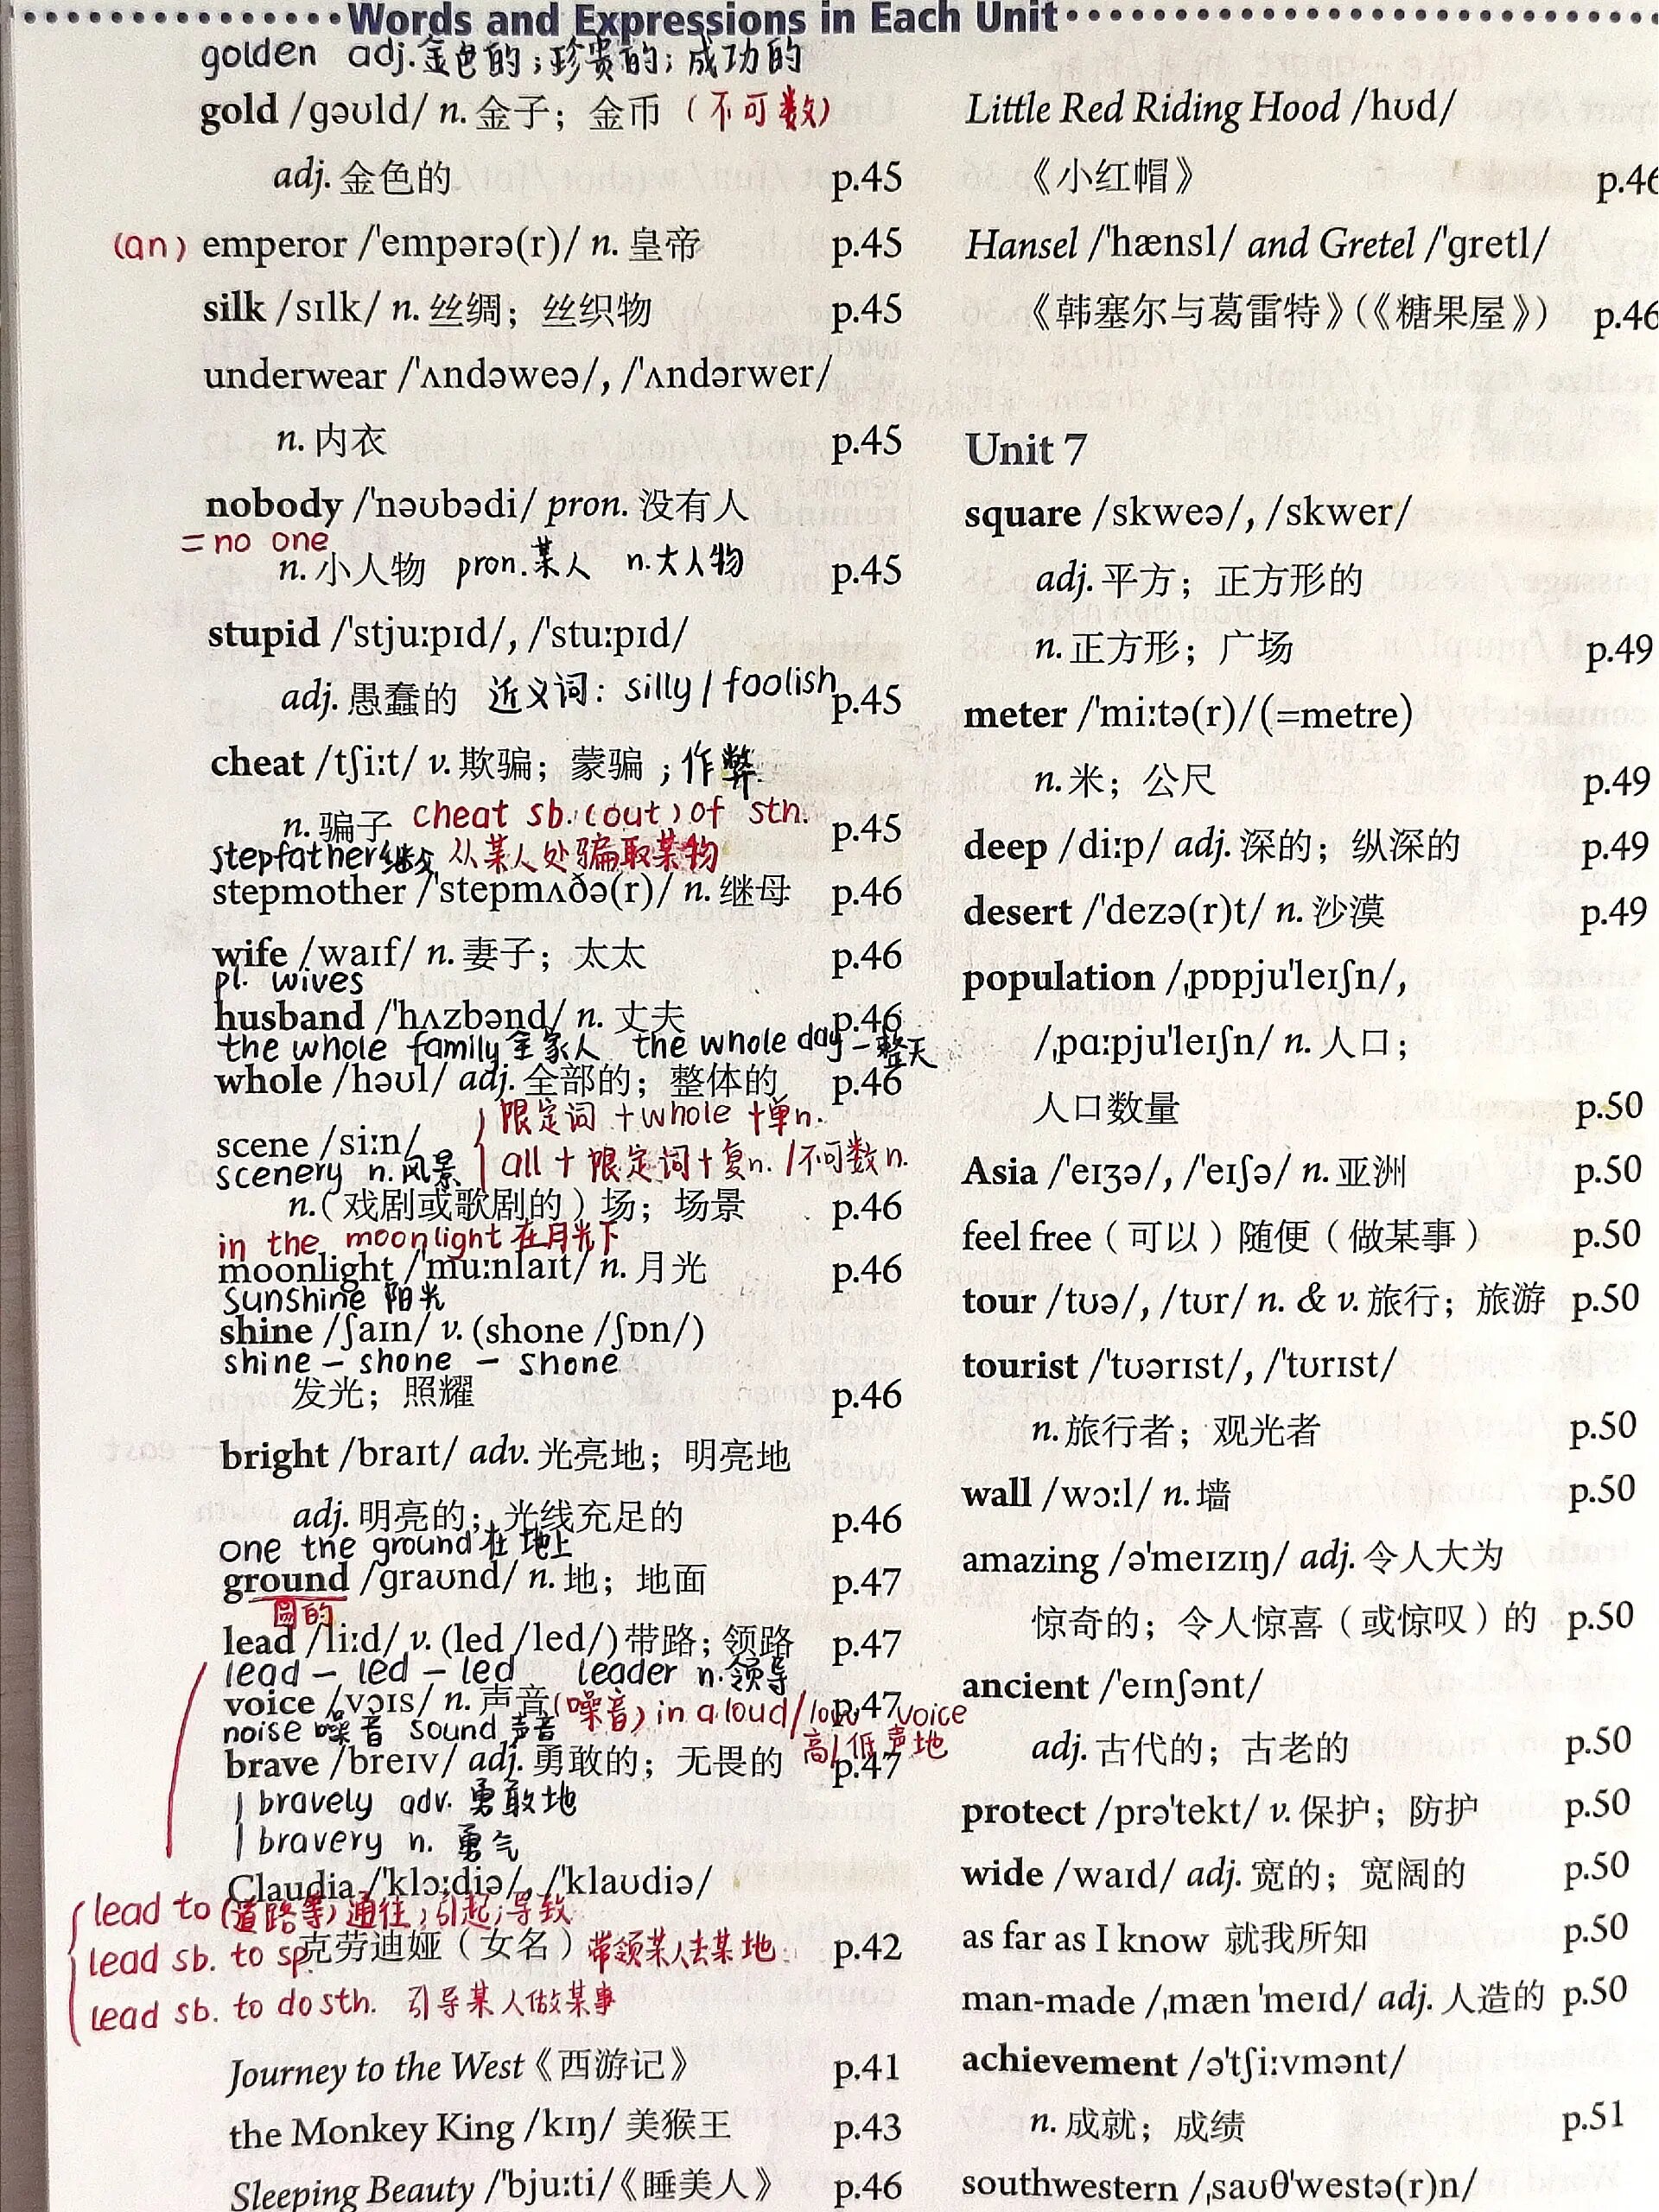 Words and Expressions in Each Unit
golden adj.金色的;珍贵的;成功的
gold /ɡəʊld/ n. 金子；金币 (不可数)
adj. 金色的 p.45
(an) emperor /'empərə(r)/ n. 皇帝 p.45
silk /sɪlk/ n. 丝绸；丝织物 p.45
underwear /'ʌndəweə/, /'ʌndərwer/
n. 内衣 p.45
nobody /'nəʊbədi/ pron. 没有人
=no one
n. 小人物 pron.某人 n.大人物 p.45
stupid /'stjuːpɪd/, /'stuːpɪd/
adj. 愚蠢的 近义词: silly/foolish p.45
cheat /tʃiːt/ v. 欺骗；蒙骗 ;作弊
n. 骗子 cheat sb.(out) of sth. p.45
stepfather继父 从某人处骗取某物
stepmother /'stepmʌðə(r)/ n. 继母 p.46
wife /waɪf/ n. 妻子；太太 p.46
pl. wives
husband /'hʌzbənd/ n. 丈夫 p.46
the whole family全家人 the whole day一整天
whole /həʊl/ adj. 全部的；整体的 p.46
限定词+whole+单n.
scene /siːn/
all+限定词+复n./不可数n.
scenery n.风景
n.（戏剧或歌剧的）场；场景 p.46
in the moonlight在月光下
moonlight /'muːnlaɪt/ n. 月光 p.46
sunshine 阳光
shine /ʃaɪn/ v. (shone /ʃɒn/)
shine – shone – shone
发光；照耀 p.46
bright /braɪt/ adv. 光亮地；明亮地
adj. 明亮的；光线充足的 p.46
one the ground在地上
ground /ɡraʊnd/ n. 地；地面 p.47
圆的
lead /liːd/ v. (led /led/) 带路；领路 p.47
lead – led – led leader n.领导
voice /vɔɪs/ n. 声音(噪音) in a loud/low voice p.47
noise 噪音 sound 声音 高/低声地
brave /breɪv/ adj. 勇敢的；无畏的 p.47
bravely adv. 勇敢地
bravery n. 勇气
Claudia /'klɔːdiə/, /'klaʊdiə/
lead to (道路等)通往;引起;导致
克劳迪娅（女名） p.42
lead sb. to sp. 带领某人去某地
lead sb. to do sth. 引导某人做某事
Journey to the West《西游记》 p.41
the Monkey King /kɪŋ/ 美猴王 p.43
Sleeping Beauty /'bjuːti/《睡美人》 p.46
Little Red Riding Hood /hʊd/
《小红帽》 p.46
Hansel /'hænsl/ and Gretel /'ɡretl/
《韩塞尔与葛雷特》(《糖果屋》) p.46
Unit 7
square /skweə/, /skwer/
adj. 平方；正方形的
n. 正方形；广场 p.49
meter /'miːtə(r)/ (=metre)
n. 米；公尺 p.49
deep /diːp/ adj. 深的；纵深的 p.49
desert /'dezə(r)t/ n. 沙漠 p.49
population /ˌpɒpju'leɪʃn/,
/ˌpɑːpju'leɪʃn/ n. 人口；
人口数量 p.50
Asia /'eɪʒə/, /'eɪʃə/ n. 亚洲 p.50
feel free（可以）随便（做某事） p.50
tour /tʊə/, /tʊr/ n. & v. 旅行；旅游 p.50
tourist /'tʊərɪst/, /'tʊrɪst/
n. 旅行者；观光者 p.50
wall /wɔːl/ n. 墙 p.50
amazing /ə'meɪzɪŋ/ adj. 令人大为
惊奇的；令人惊喜（或惊叹）的 p.50
ancient /'eɪnʃənt/
adj. 古代的；古老的 p.50
protect /prə'tekt/ v. 保护；防护 p.50
wide /waɪd/ adj. 宽的；宽阔的 p.50
as far as I know 就我所知 p.50
man-made /ˌmæn 'meɪd/ adj. 人造的 p.50
achievement /ə'tʃiːvmənt/
n. 成就；成绩 p.51
southwestern /ˌsaʊθ'westə(r)n/